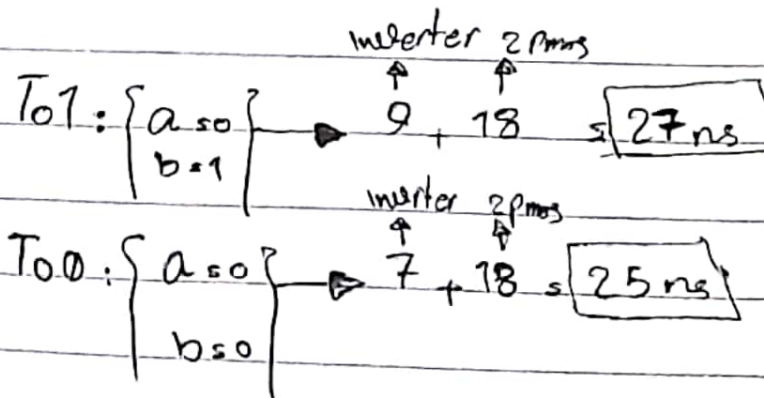 inverter 2 Pmos
To1: { a=0 } → 9 + 18 = 27 ns
b=1
inverter 2pmos
To0: { a=0 } → 7 + 18 = 25 ns
b=0